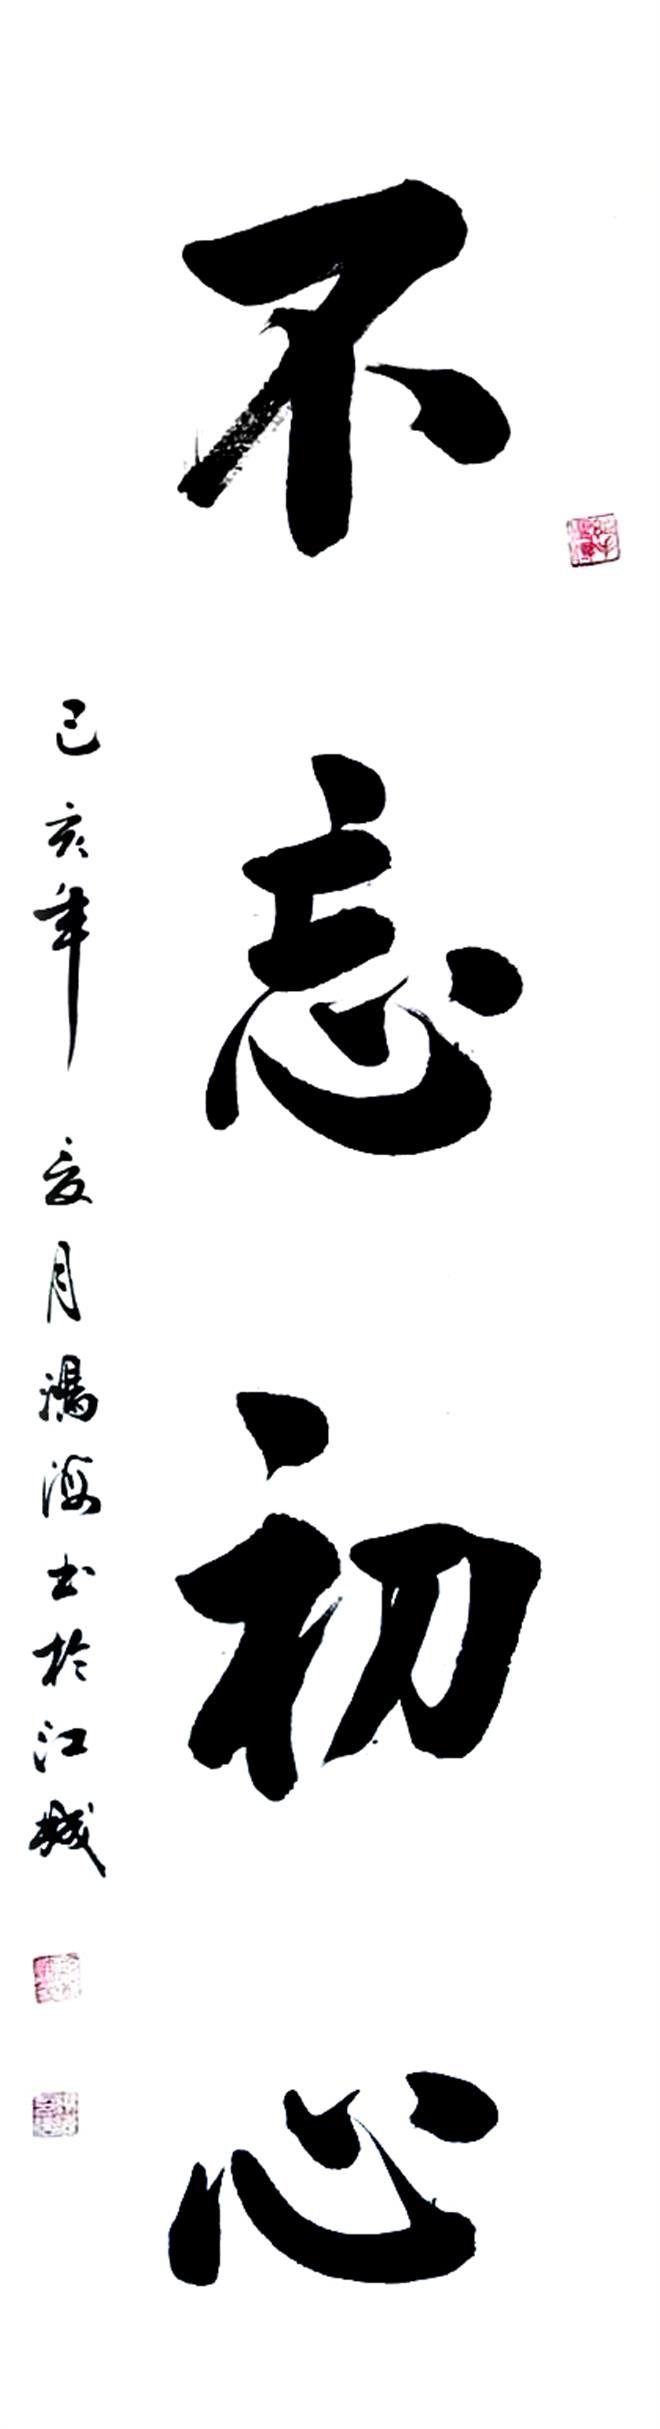 不忘初心
己亥年夏月鸿海书於江城